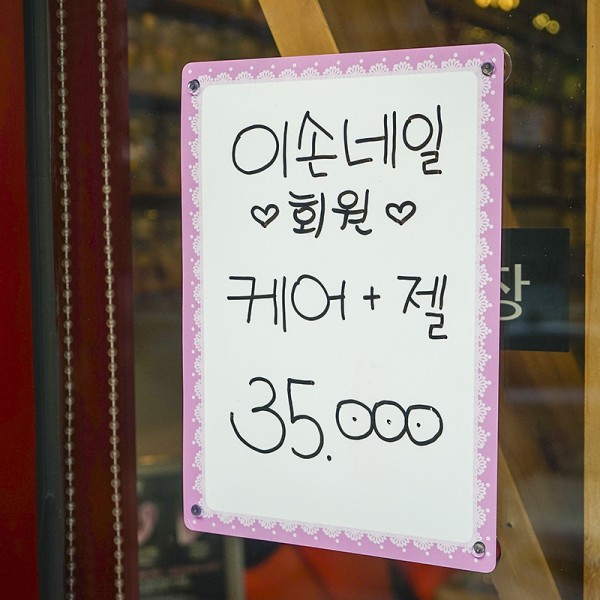 이손네일
♡회원♡
케어+젤
35.000
장